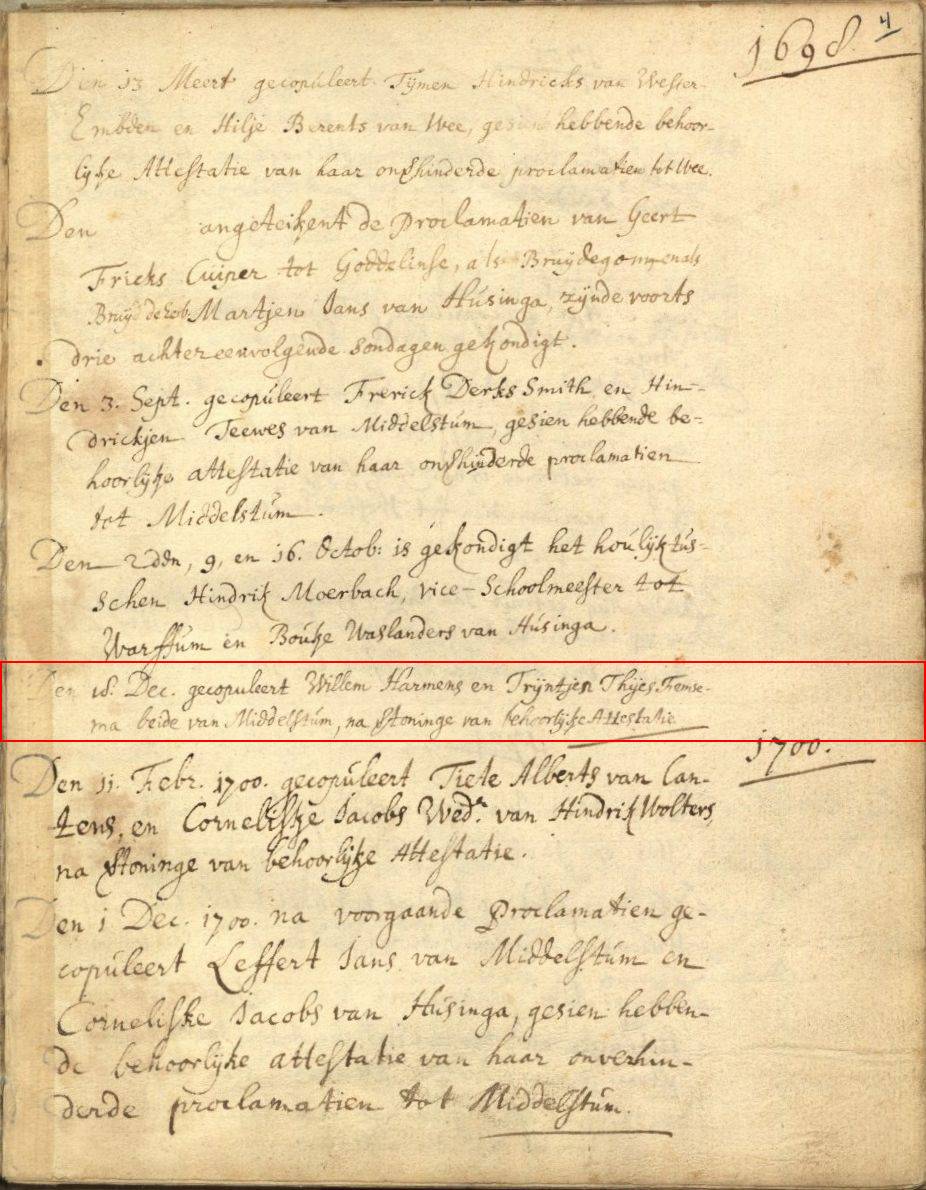 1698. 4
Den 13 Meert gecopuleert Tijmen Hindricks van Wester-
Embden en Hilje Berents van Wee, gesien hebbende behoor-
lijke Attestatie van haar onverhinderde proclamatien tot Wee.
Den angeteikent de Proclamatien van Geert
Fricks Cuiper tot Goddelinse, als Bruijdegom, en als
Bruijd Martjen Jans van Húsinga, zijnde voorts
drie achtereenvolgende Sondagen gekondigt.
Den 3. Sept. gecopúleert Frerick Derks Smith en Hin-
drickjen Teewes van Middelstúm, gesien hebbende be-
hoorlijke attestatie van haar onverhinderde proclamatien
tot Middelstúm.
Den 2den, 9, en 16. Octob: is gekondigt het hoúlijk tús-
schen Hindrik Moerbach, vice-Schoolmeester tot
Warffúm en Boúke Waslanders van Húsinga.
Den 18. Dec. gecopuleert Willem Harmens en Trijntjen Thijes Femse-
ma beide van Middelstúm, na vertoninge van behoorlijke Attestatie
1700.
Den 11. Febr. 1700. gecopúleert Tiete Alberts van Can-
tens, en Cornelisje Jacobs Wedr. van Hindrik Wolters,
na vertoninge van behoorlijke Attestatie.
Den 1 Dec. 1700. na voorgaande Proclamatien ge-
copúleert Leffert Jans van Middelstúm en
Corneliske Jacobs van Húsinga, gesien hebben-
de behoorlijke attestatie van haar onverhin-
derde proclamatien tot Middelstúm.